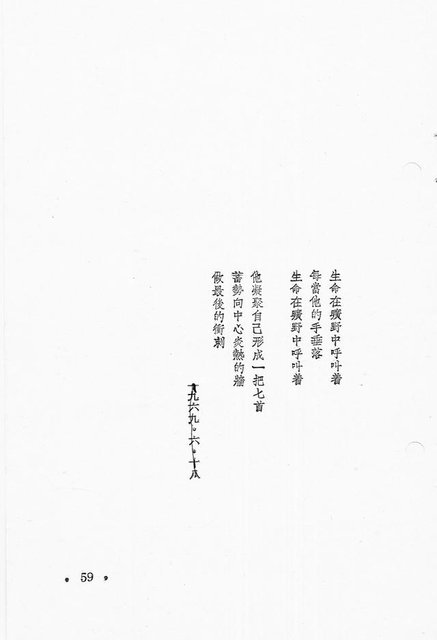 生命在曠野中呼叫着
每當他的手垂落
生命在曠野中呼叫着
他凝聚自己形成一把匕首
蓄勢向中心炎熱的牆
做最後的衝刺
一九六九。六。十八
59